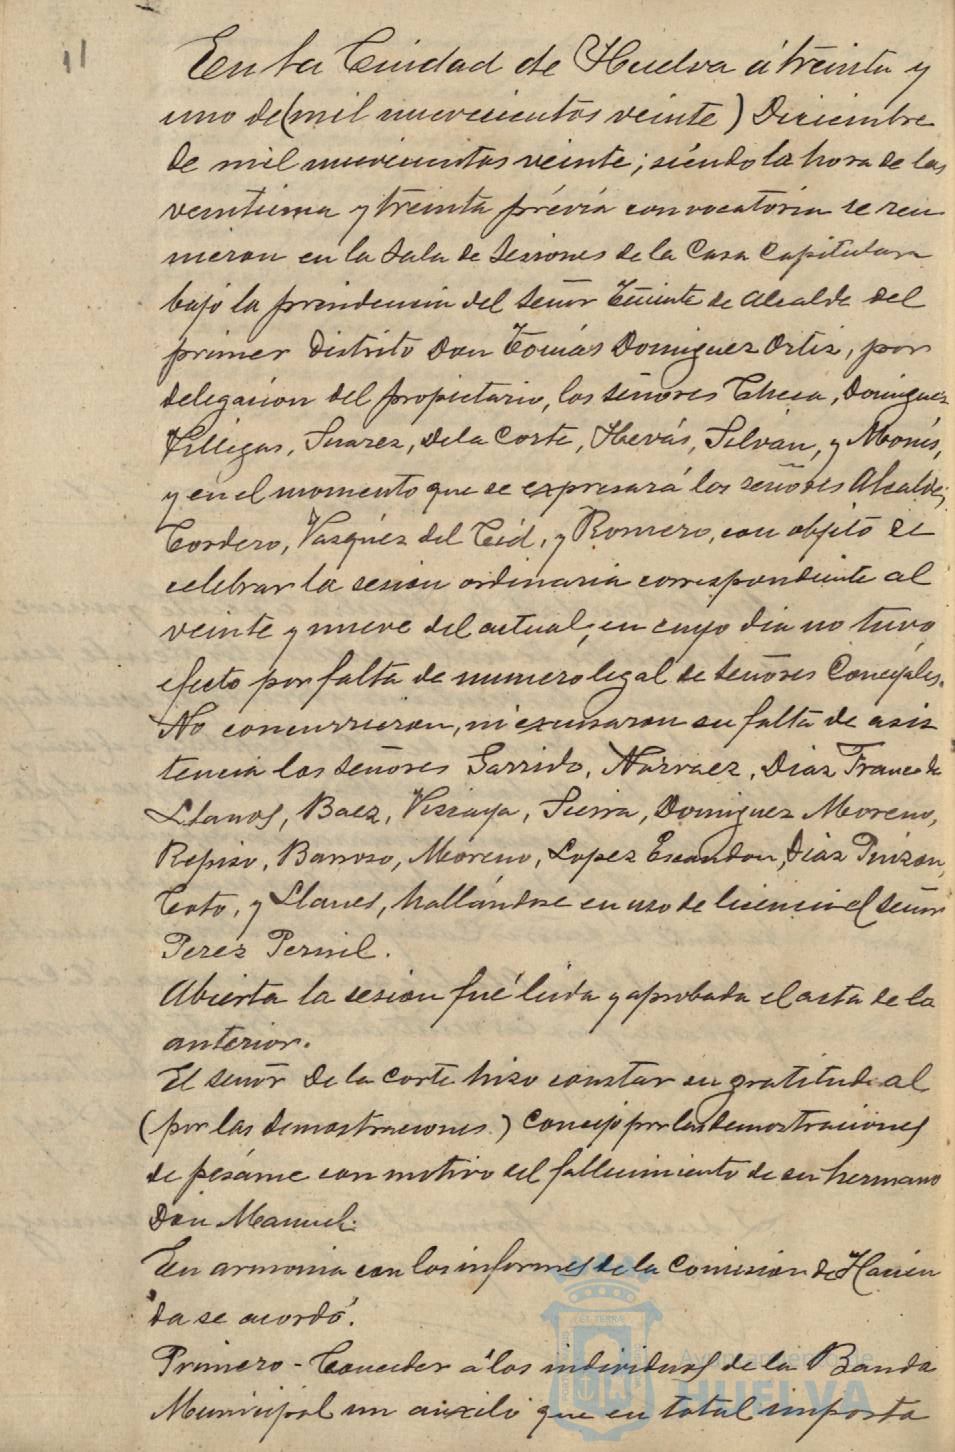 11
En la Ciudad de Huelva á treinta y
uno de (mil nuevecientos veinte) Diciembre
de mil nuevecientos veinte; siéndo la hora de las
veintiuna y treinta prévia convocatoria se reu
nieron en la Sala de Sesiones de la Casa Capitular
bajo la presidencia del Señor Teniente de Alcalde del
primer Distrito Don Tomás Dominguez Ortiz, por
delegacion del propietario, los señores Checa, Dominguez
Villegas, Suarez, De la Corte, Hevás, Silvan, y Monís,
y en el momento que se expresará los señores Alcalde,
Cordero, Vazquez del Cid, y Romero, con objeto de
celebrar la sesion ordinaria correspondiente al
veinte y nueve del actual, en cuyo dia no tuvo
efecto por falta de numero legal de señores Concejales.
No concurrieron, ni excusaron su falta de asis
tencia los señores Garrido, Narvaez, Diaz Franco de
Llanos, Baez, Viscaya, Sierra, Dominguez Moreno,
Repiso, Barroso, Moreno, Lopez Escandon, Diaz Pinzon,
Coto, y Llanes, hallándose en uso de licencia el señor
Perez Pernil.
Abierta la sesion fué leida y aprobada el acta de la
anterior.
El señor De la Corte hizo constar su gratitud al
(por las demostraciones) Concejo por las demostraciones
de pésame con motivo del fallecimiento de su hermano
Don Manuel.
En armonia con los informes de la Comision de Hacien
da se acordó.
Primero - Conceder á los individuos de la Banda
Municipal un auxilio que en total importa
Ayuntamiento de
HUELVA